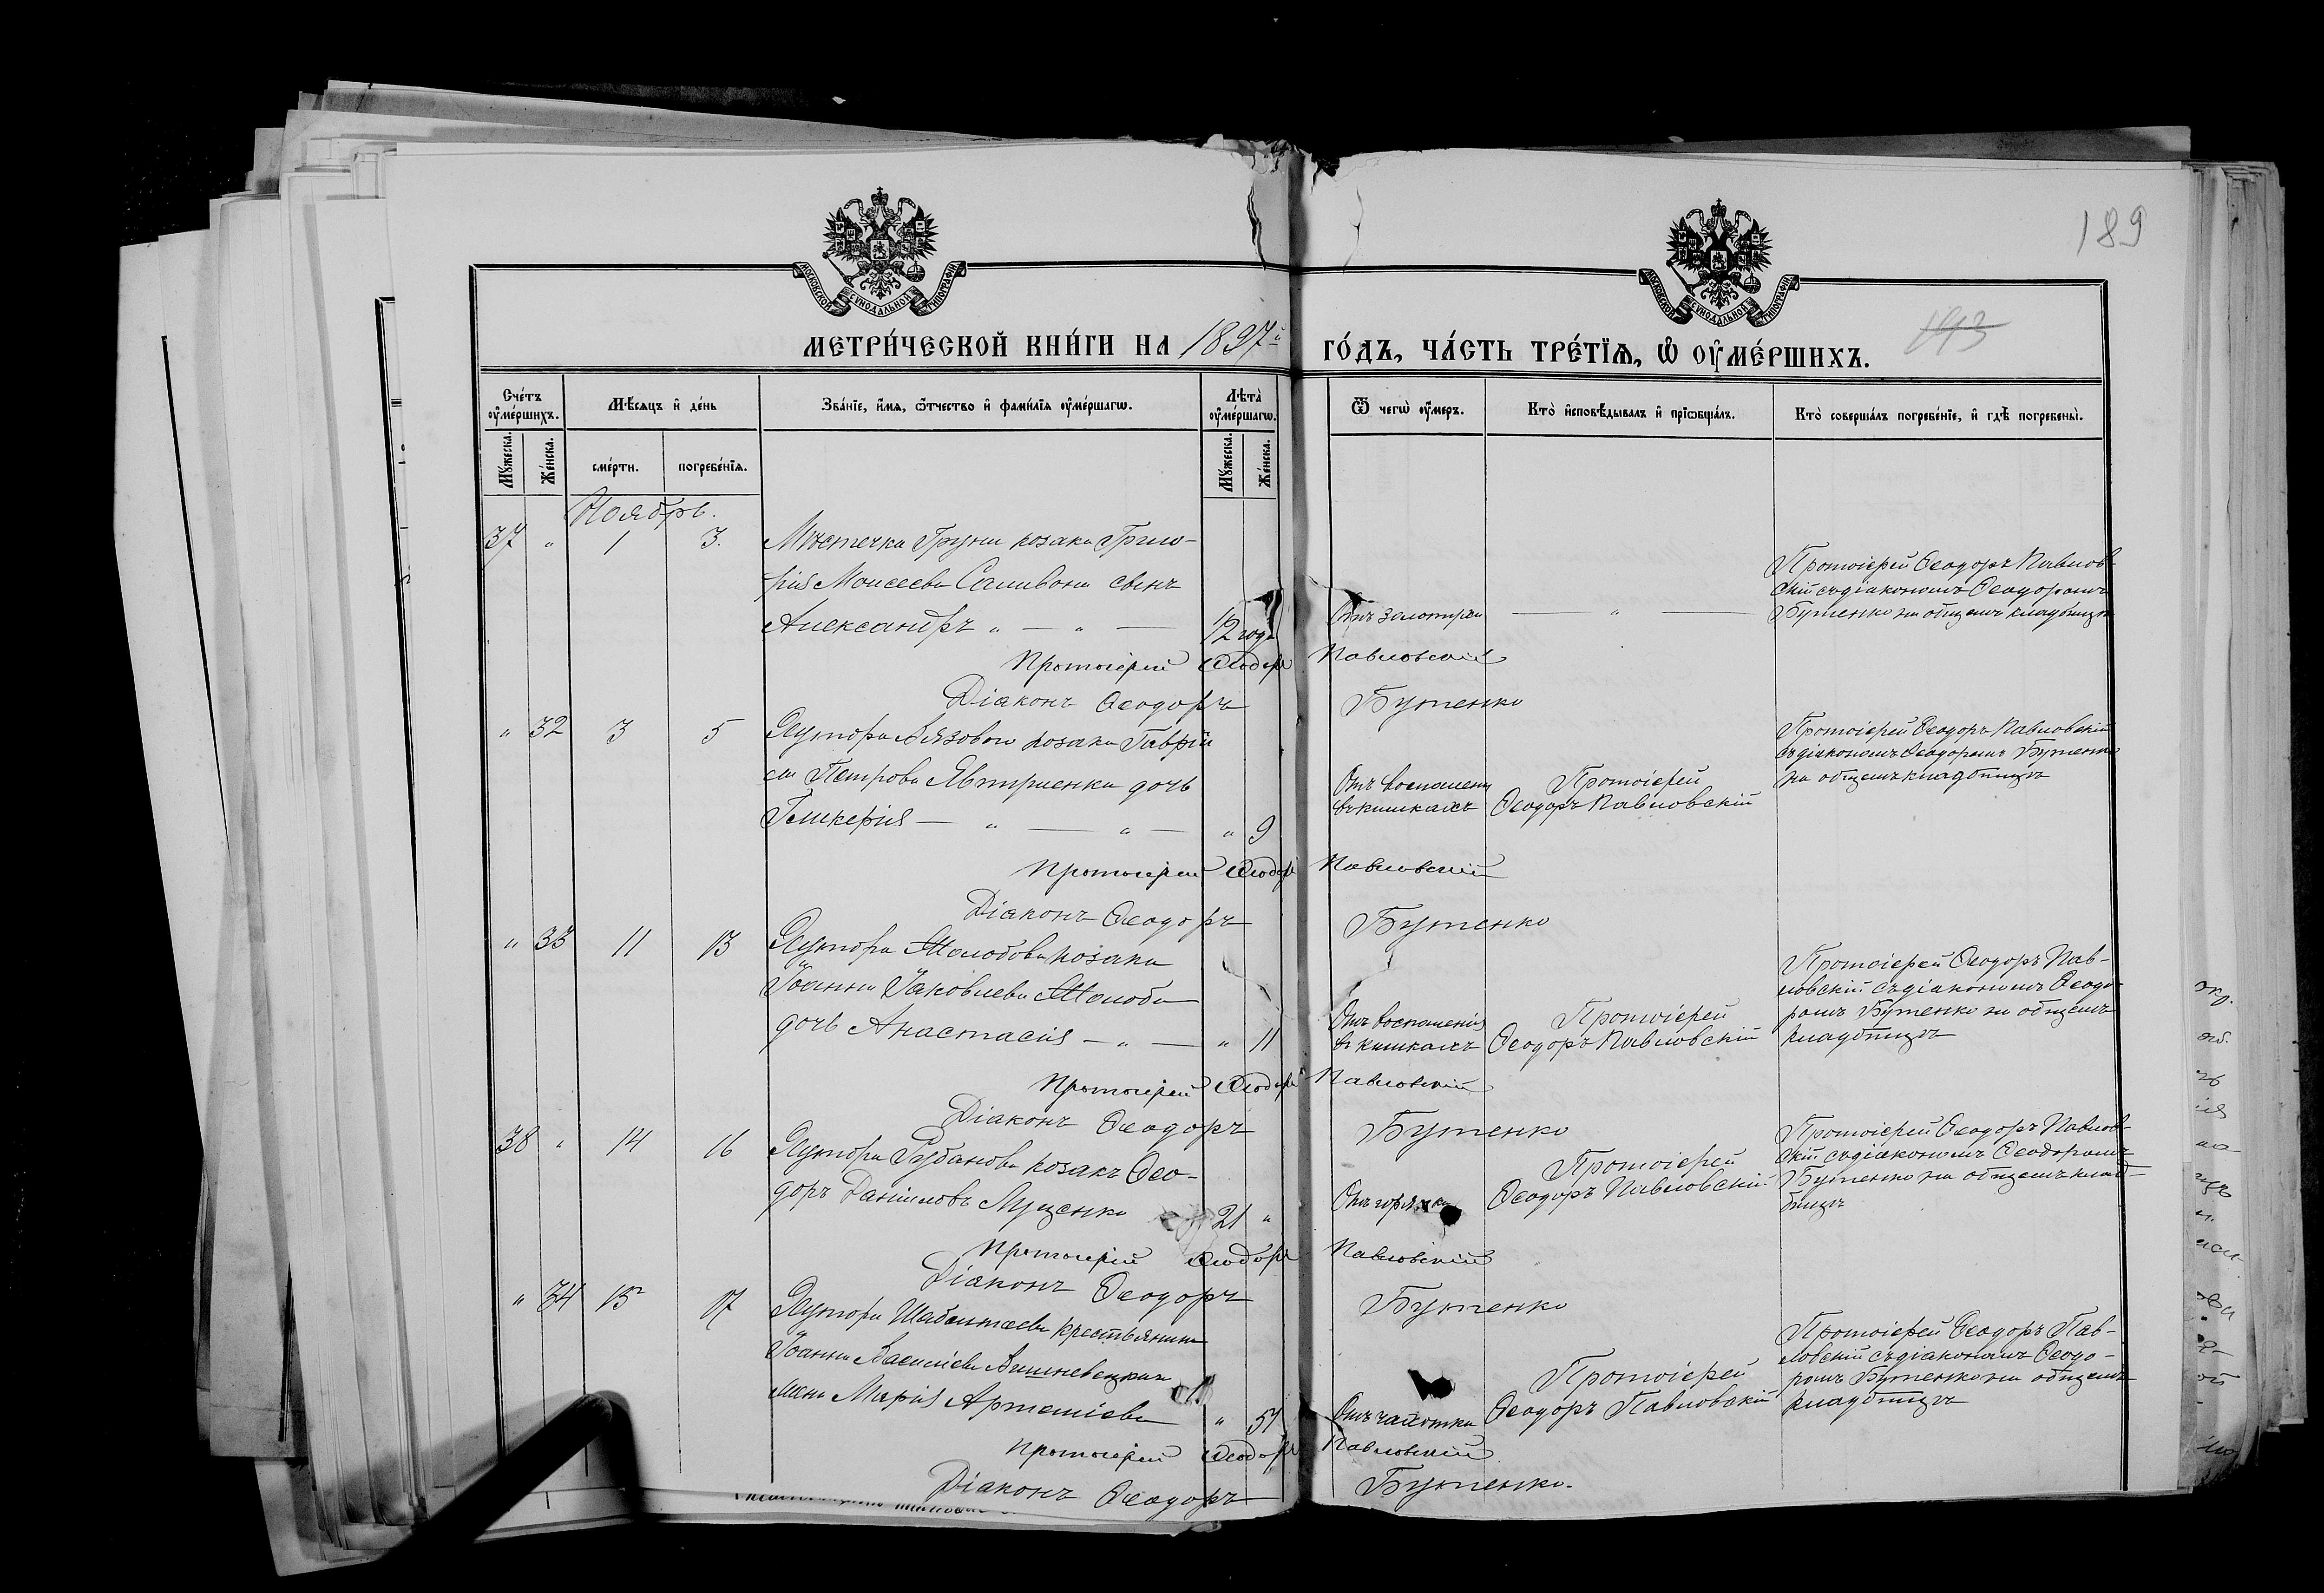 189
МОСКОВСКОЙ СѴНОДАЛЬНОЙ ТИПОГРАФІИ
МОСКОВСКОЙ СѴНОДАЛЬНОЙ ТИПОГРАФІИ
МЕТРИ́ЧЕСКОЙ КНИ́ГИ НА 1897й ГО́ДЪ, ЧА́СТЬ ТРЕ́ТІѦ, Ѡ҆ ОУ҆МЕ́РШИХЪ.
Сче́тъ оу҆ме́ршихъ.
Мѣ́сѧцъ и҆ де́нь
Зва́нїе, и҆́мѧ, ѻ҆́тчество и҆ фами́лїѧ оу҆ме́ршагѡ.
Лѣ́та оу҆ме́ршагѡ.
Ѿ чегѡ̀ оу҆́меръ.
Кто̀ и҆сповѣ́дывалъ и҆ прїѡбща́лъ.
Кто̀ соверша́лъ погребе́нїе, и҆ гдѣ̀ погребены̀.
Мꙋ́жеска.
Же́нска.
сме́рти.
погребе́нїѧ.
Мꙋ́жеска.
Же́нска.
Ноябрь.
37 " 1 3. Мѣстечка Груни козака Григо-
рія Моисеева Саливона сынъ
Александръ " — " — 12 года
Отъ золотухи — " —
Протоіерей Ѳеодоръ Павлов-
скій съ діакономъ Ѳеодоромъ
Бутенко на общемъ кладбищѣ
Протоіерей Ѳеодоръ Павловскій
Діаконъ Ѳеодоръ Бутенко
" 32 3 5 Хутора Вязового козака Гаврiи
ла Петрова Явтушенка дочь
Гликерія — " — " — " 9
Отъ воспаленія
въ кишкахъ
Протоіерей
Ѳеодоръ Павловскій
Протоіерей Ѳеодоръ Павловскій
съ діакономъ Ѳеодоромъ Бутенко
на общемъ кладбищѣ
Протоіерей Ѳеодоръ Павловскій
Діаконъ Ѳеодоръ Бутенко
" 33 11 13 Хутора козака
Іоанна Іаковлева
дочь Анастасія — " — " 11
Отъ воспаленія
въ кишкахъ
Протоіерей
Ѳеодоръ Павловскій
Протоіерей Ѳеодоръ Пав-
ловскій съ діакономъ Ѳеодо-
ромъ Бутенко на общемъ
кладбищѣ
Протоіерей Ѳеодоръ Павловскій
Діаконъ Ѳеодоръ Бутенко
38 " 14 16 Хутора Рубанова козакъ Ѳео-
доръ Даніиловъ Луценко 21 "
Отъ горячки
Протоіерей
Ѳеодоръ Павловскій
Протоіерей Ѳеодоръ Павлов-
скій съ діакономъ Ѳеодоромъ
Бутенко на общемъ клад-
бищѣ
Протоіерей Ѳеодоръ Павловскій
Діаконъ Ѳеодоръ Бутенко
" 34 15 17 Хутора крестьянина
Іоанна Василіева Вишневецкаго
жена Марія Артеміева " 51
Отъ чахотки
Протоіерей
Ѳеодоръ Павловскій
Протоіерей Ѳеодоръ Пав-
ловскій съ діакономъ Ѳеодо-
ромъ Бутенко на общемъ
кладбищѣ
Протоіерей Ѳеодоръ Павловскій
Діаконъ Ѳеодоръ Бутенко.